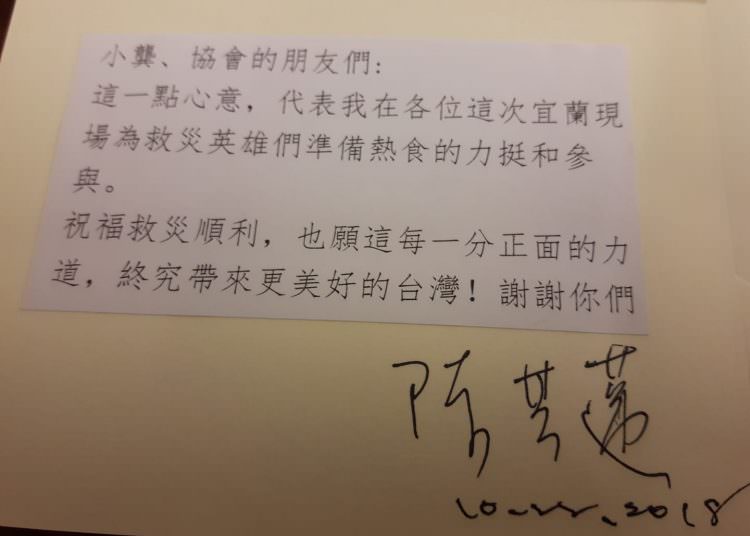 小龔、協會的朋友們:
這一點心意，代表我在各位這次宜蘭現
場為救災英雄們準備熱食的力挺和參
與。
祝福救災順利，也願這每一分正面的力
道，終究帶來更美好的台灣！謝謝你們
陳其邁
10.22.2018